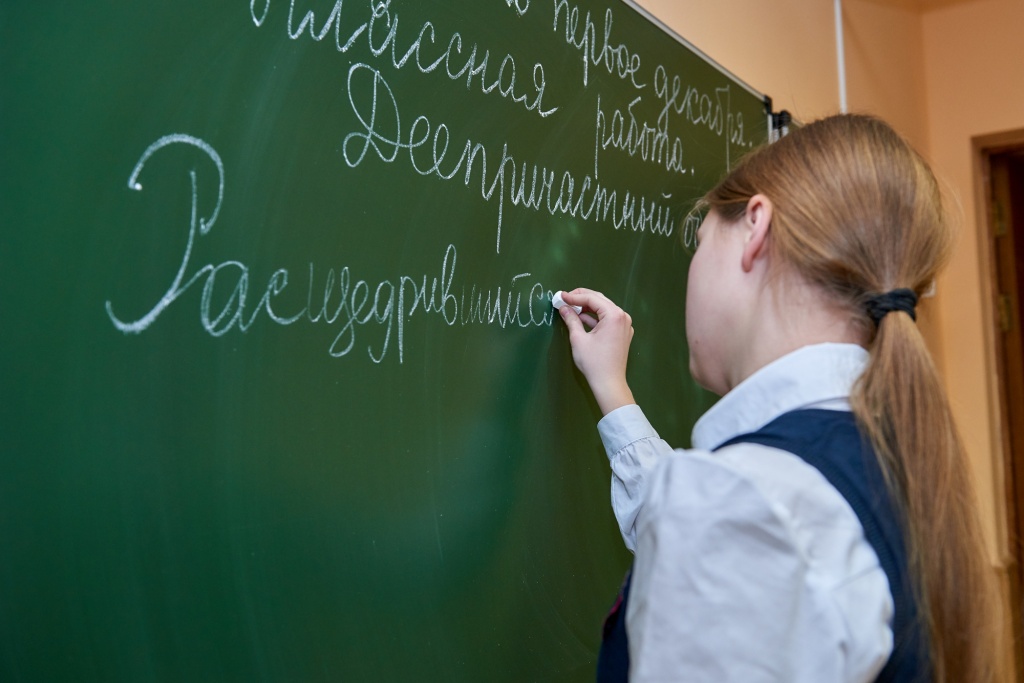 первое декабря.
Классная работа.
Деепричастный
Расщедрившийся